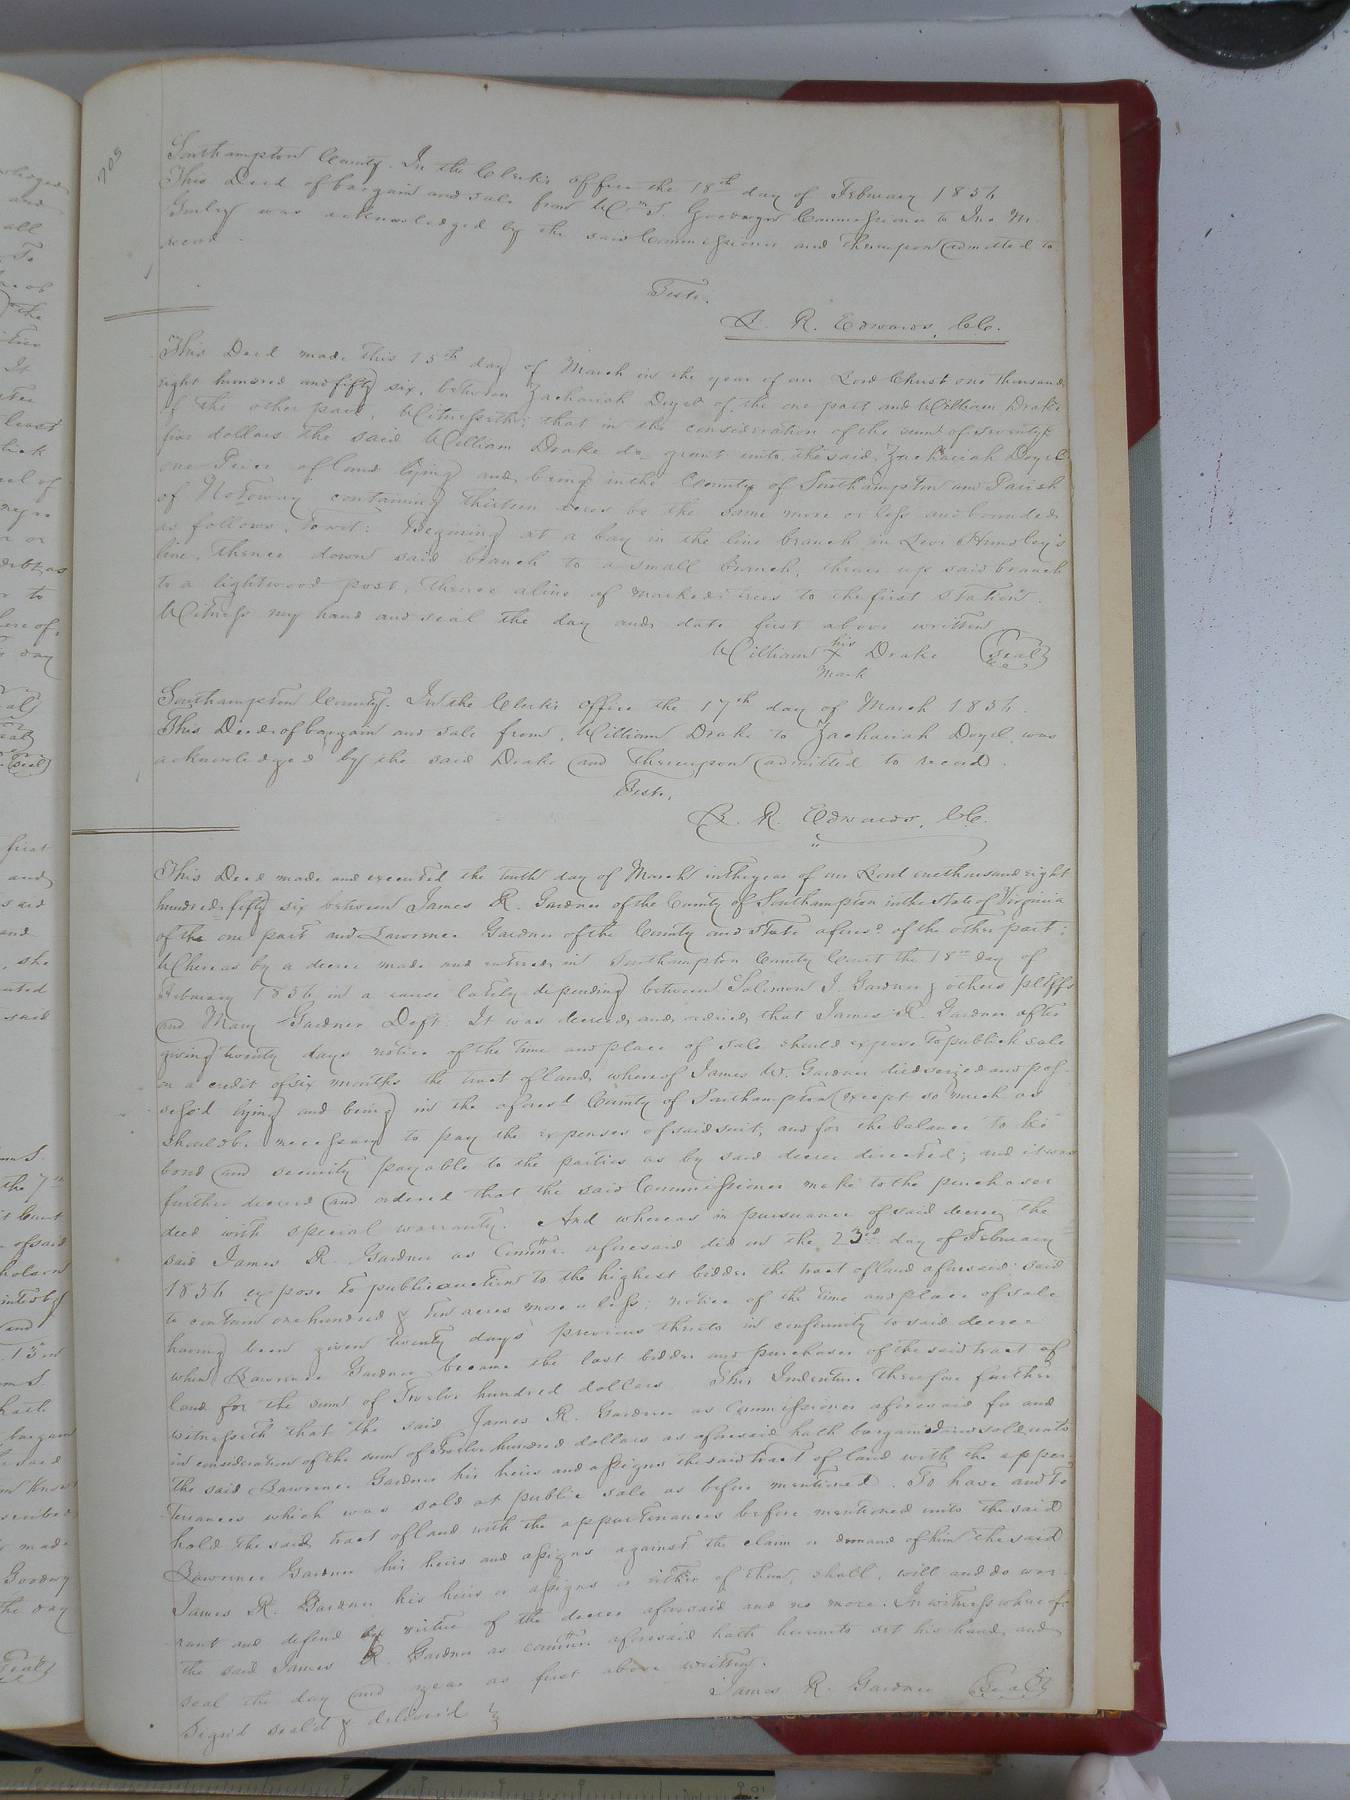 703
Southampton County. In the Clerk's office the 18th day of February 1856
This Deed of bargain and sale from Wm S. Goodwyn Commissioner to Jno M.
Gurley was acknowledged by the said Commissioner and thereupon admitted to
record.
Teste,
L. R. Edwards, CC.
This Deed made this 15th day of March in the year of our Lord Christ one thousand
eight hundred and fifty six, between Zachariah Doyel of the one part and William Drake
of the other part, Witnesseth; that in the consideration of the sum of seventy
five dollars the said William Drake do grant unto the said Zachariah Doyel
one Peice of land lying and being in the County of Southampton and Parish
of Notoway containing thirteen acres be the same more or less and bounded
as follows, Towit: Begining at a bay in the line branch in Levi Hunsley's
line, thence down said branch to a small branch, thence up said branch
to a lightwood post, thence aline of marked trees to the first station.
Witness my hand and seal the day and date first above written
his
William X Drake (seal)
mark
Southampton County. In the Clerk's office the 17th day of March 1856.
This Deed of bargain and sale from William Drake to Zachariah Doyel was
acknowledged by the said Drake and thereupon admitted to record.
Teste,
L. R. Edwards, CC.
This Deed made and executed the tenth day of March in the year of our Lord one thousand eight
hundred & fifty six between James R. Gardner of the County of Southampton in the State of Virginia
of the one part and Lawrence Gardner of the County and State aforesd of the other part:
Whereas by a decree made and entered in Southampton County Court the 18th day of
February 1856 in a cause lately depending between Solomon J. Gardner & others pltffs
and Mary Gardner Deft. It was decreed and ordered, that James R. Gardner after
giving twenty days notice of the time and place of sale should expose to publick sale
on a credit of six months the tract of land, whereof James W. Gardner died seized and pos-
sess'd lying and being in the aforesd County of Southampton (except so much as
should be necessary to pay the expenses of said suit, and for the balance to
bond and security payable to the parties as by said decree directed; and it was
further decreed and ordered that the said Commissioner make to the purchaser
deed with special warranty. And whereas in pursuance of said decree the
said James R. Gardner as Commr. aforesaid did on the 23rd day of February
1856 expose to public auction to the highest bidder the tract of land aforesaid said
to contain one hundred & ten acres more or less; notice of the time and place of sale
having been given twenty days previous thereto in conformity to said decree
when Lawrence Gardner became the last bidder and purchaser of the said tract of
land for the sum of Twelve hundred dollars This Indenture therefore further
witnesseth that the said James R. Gardner as Commissioner aforesaid for and
in consideration of the sum of Twelve hundred dollars as aforesaid hath bargained and sold unto
the said Lawrence Gardner his heirs and assigns the said tract of land with the appur
tenances which was sold at public sale as before mentioned. To have and to
hold the said tract of land with the appurtenances before mentioned unto the said
Lawrence Gardner his heirs and assigns against the claim or demand of him the said
James R. Gardner his heirs or assigns or either of them, shall, will and do war-
rant and defend by virtue of the decree aforesaid and no more. In witness whereof
the said James R. Gardner as commr. aforesaid hath hereunto set his hand and
seal the day and year as first above written.
James R. Gardner (Seal)
Sign'd seal'd & deliver'd